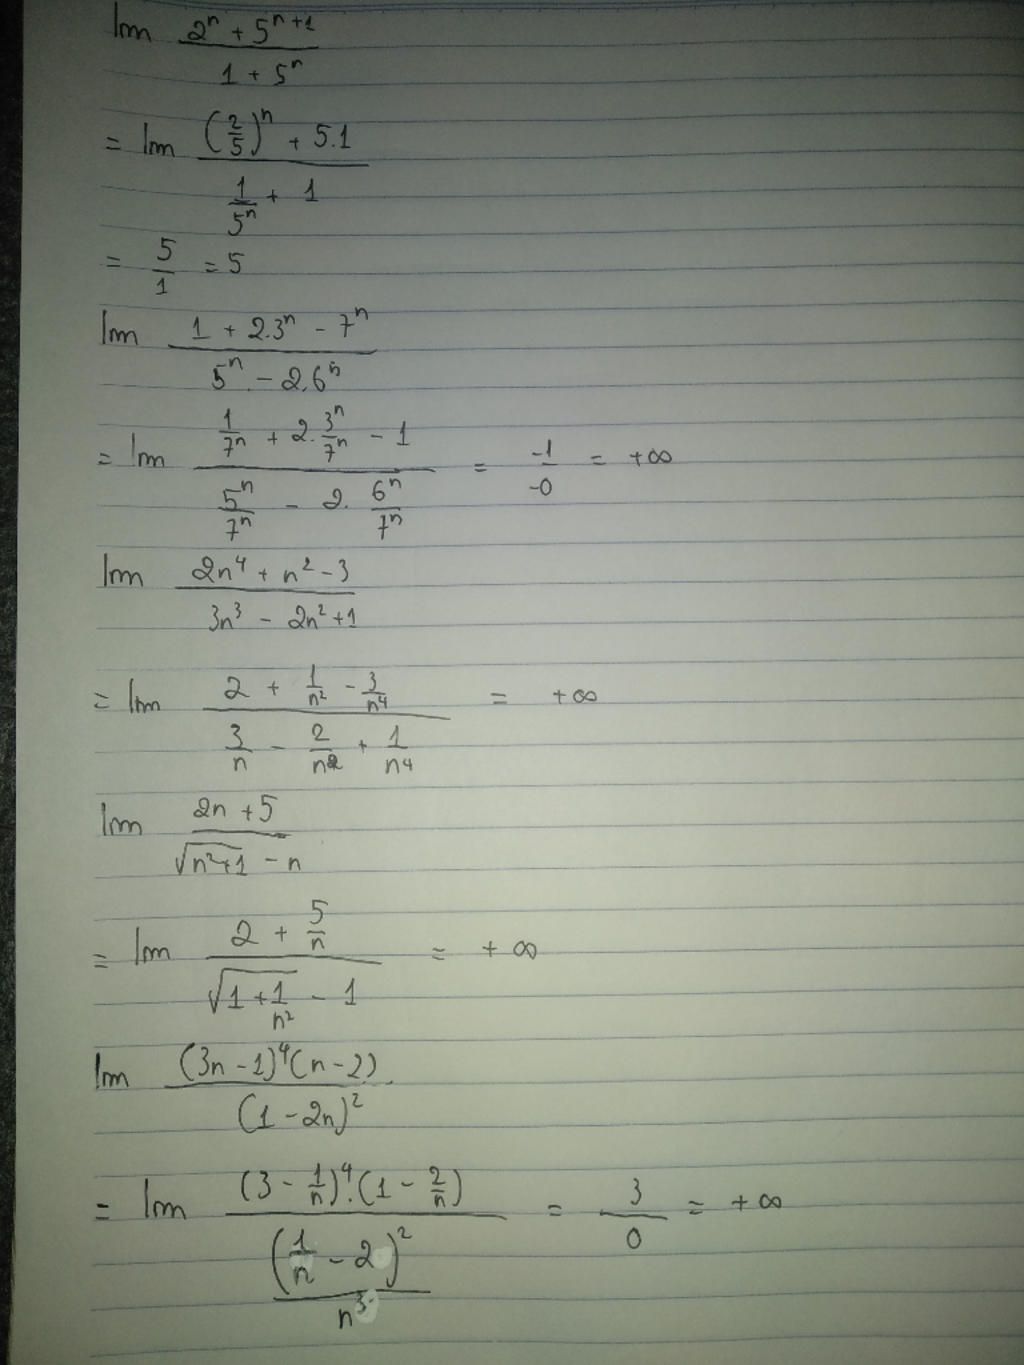 lim (2ⁿ + 5ⁿ⁺¹)/(1 + 5ⁿ)
= lim ((2/5)ⁿ + 5.1)/(1/5ⁿ + 1)
= 5/1 = 5
lim (1 + 2.3ⁿ - 7ⁿ)/(5ⁿ - 2.6ⁿ)
= lim (1/7ⁿ + 2.3ⁿ/7ⁿ - 1)/(5ⁿ/7ⁿ - 2.6ⁿ/7ⁿ) = -1/-0 = +∞
lim (2n⁴ + n² - 3)/(3n³ - 2n² + 1)
= lim (2 + 1/n² - 3/n⁴)/(3/n - 2/n² + 1/n⁴) = +∞
lim (2n + 5)/(√(n²+1) - n)
= lim (2 + 5/n)/(√(1 + 1/n²) - 1) = +∞
lim (3n - 1)⁴(n - 2)/(1 - 2n)²
= lim ((3 - 1/n)⁴.(1 - 2/n))/((1/n - 2)²/n³) = 3/0 = +∞